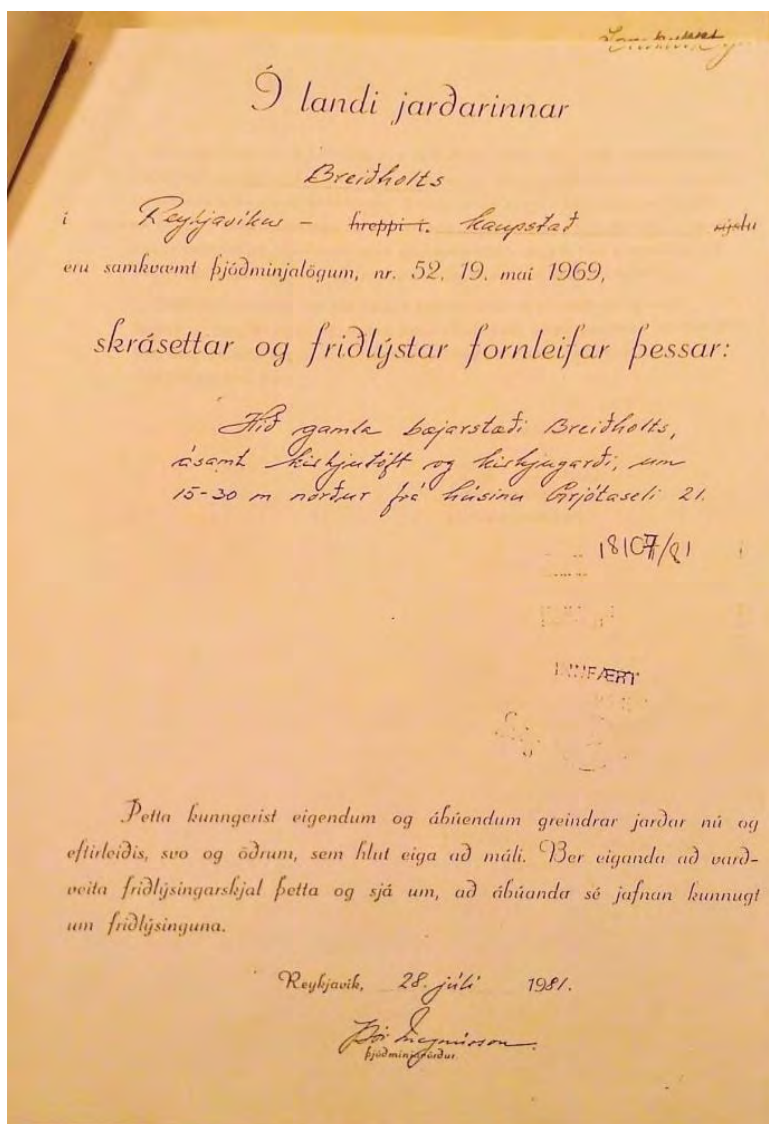 Í landi jarðarinnar
Breiðholts
í Reykjavíkur - hreppi í. kaupstað sýslu
eru samkvæmt þjóðminjalögum, nr. 52, 19. maí 1969,
skrásettar og friðlýstar fornleifar þessar:
Hið gamla bæjarstæði Breiðholts,
ásamt kirkjutóft og kirkjugarði, um
15-30 m norður frá húsinu Grjótaseli 21.
INNFÆRT
Þetta kunngerist eigendum og ábúendum greindrar jarðar nú og
eftirleiðis, svo og öðrum, sem hlut eiga að máli. Ber eiganda að varð-
veita friðlýsingarskjal þetta og sjá um, að ábúanda sé jafnan kunnugt
um friðlýsinguna.
Reykjavík, 28. júlí 1981.
Þór Magnússon
þjóðminjavörður.